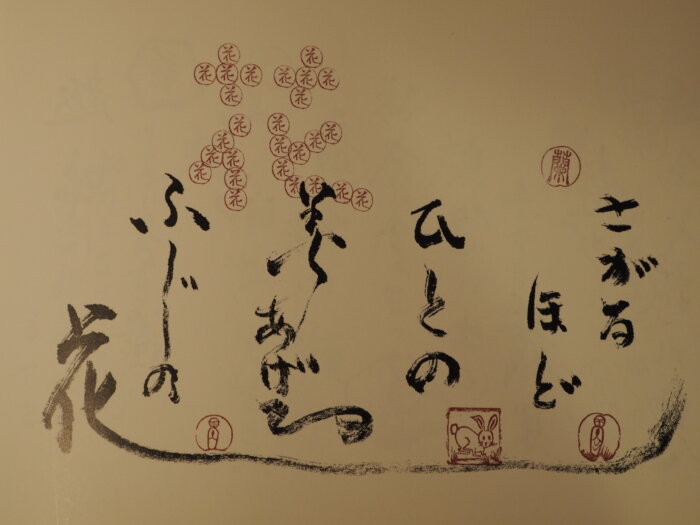 蘭
さがる
ほど
ひとの
みあげる
ふじの
花
花 花 花 花 花 花 花 花 花 花 花 花 花 花 花 花 花 花 花 花 花 花 花 花 花 花 花